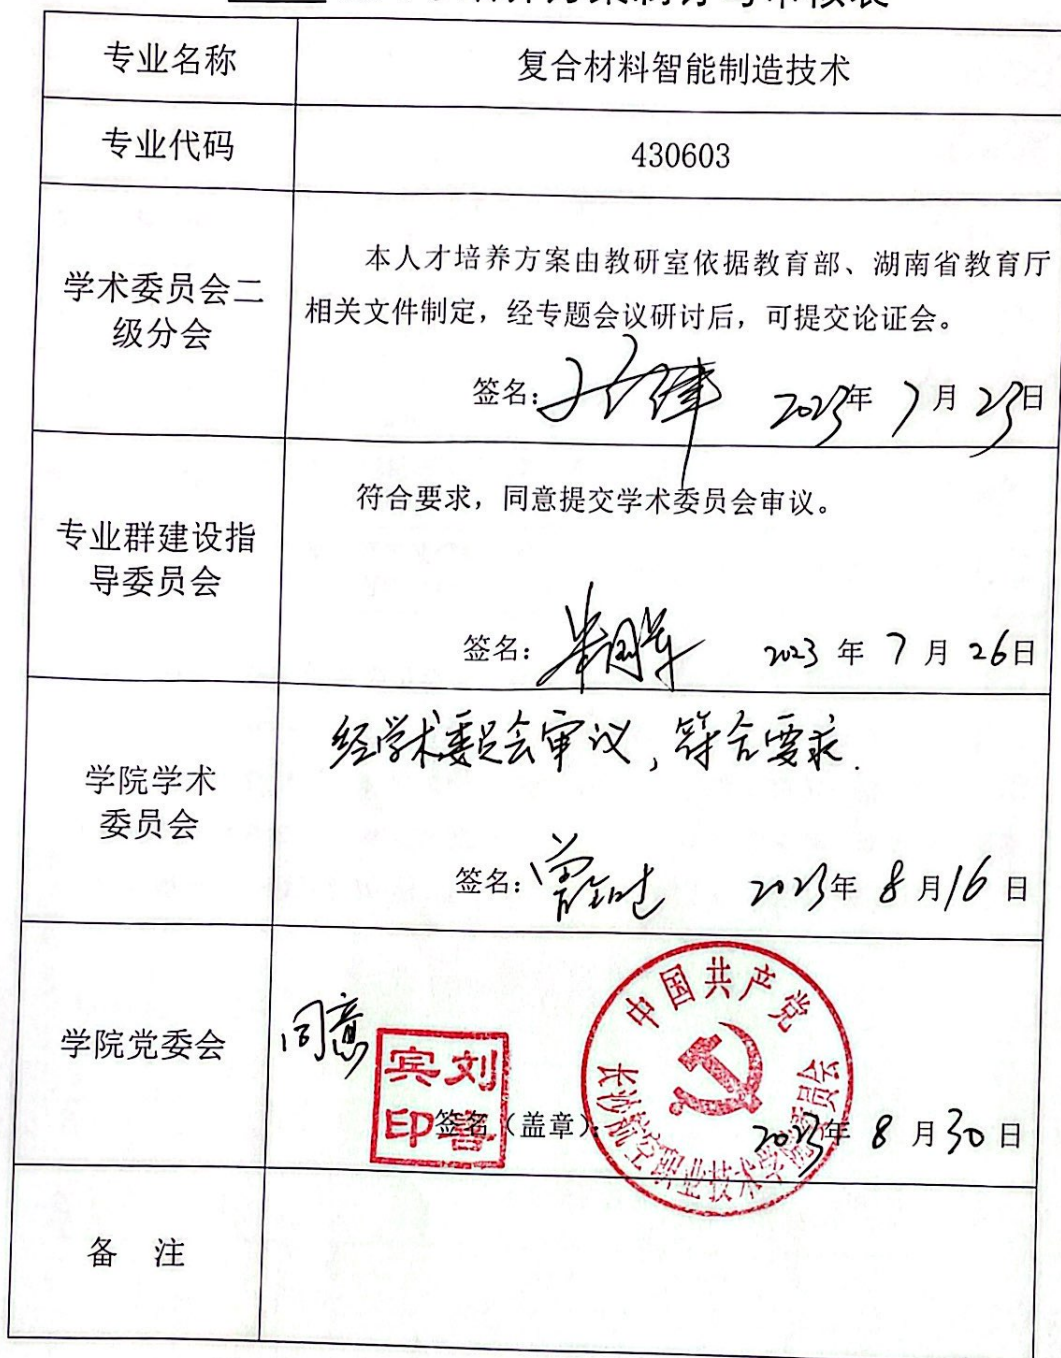 专业名称
复合材料智能制造技术
专业代码
430603
学术委员会二
级分会
本人才培养方案由教研室依据教育部、湖南省教育厅
相关文件制定，经专题会议研讨后，可提交论证会。
签名： 2023年 7月 23日
专业群建设指
导委员会
符合要求，同意提交学术委员会审议。
签名： 2023 年 7 月 26日
学院学术
委员会
经学术委员会审议，符合要求.
签名： 2023年 8月16日
学院党委会
同意
刘善宾印
中国共产党
长沙航空职业技术学院委员会
签名（盖章）： 2023年 8 月30日
备 注